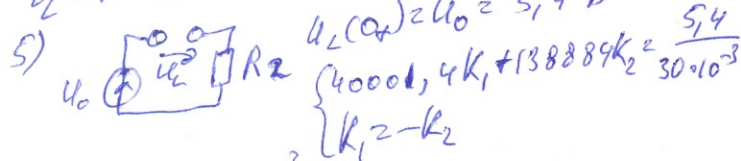 5)
U₀ U_L R2
U_L(0+)=U₀=5,4 В
{40001,4K₁+138884K₂=5,4/30·10⁻³
K₁=-K₂